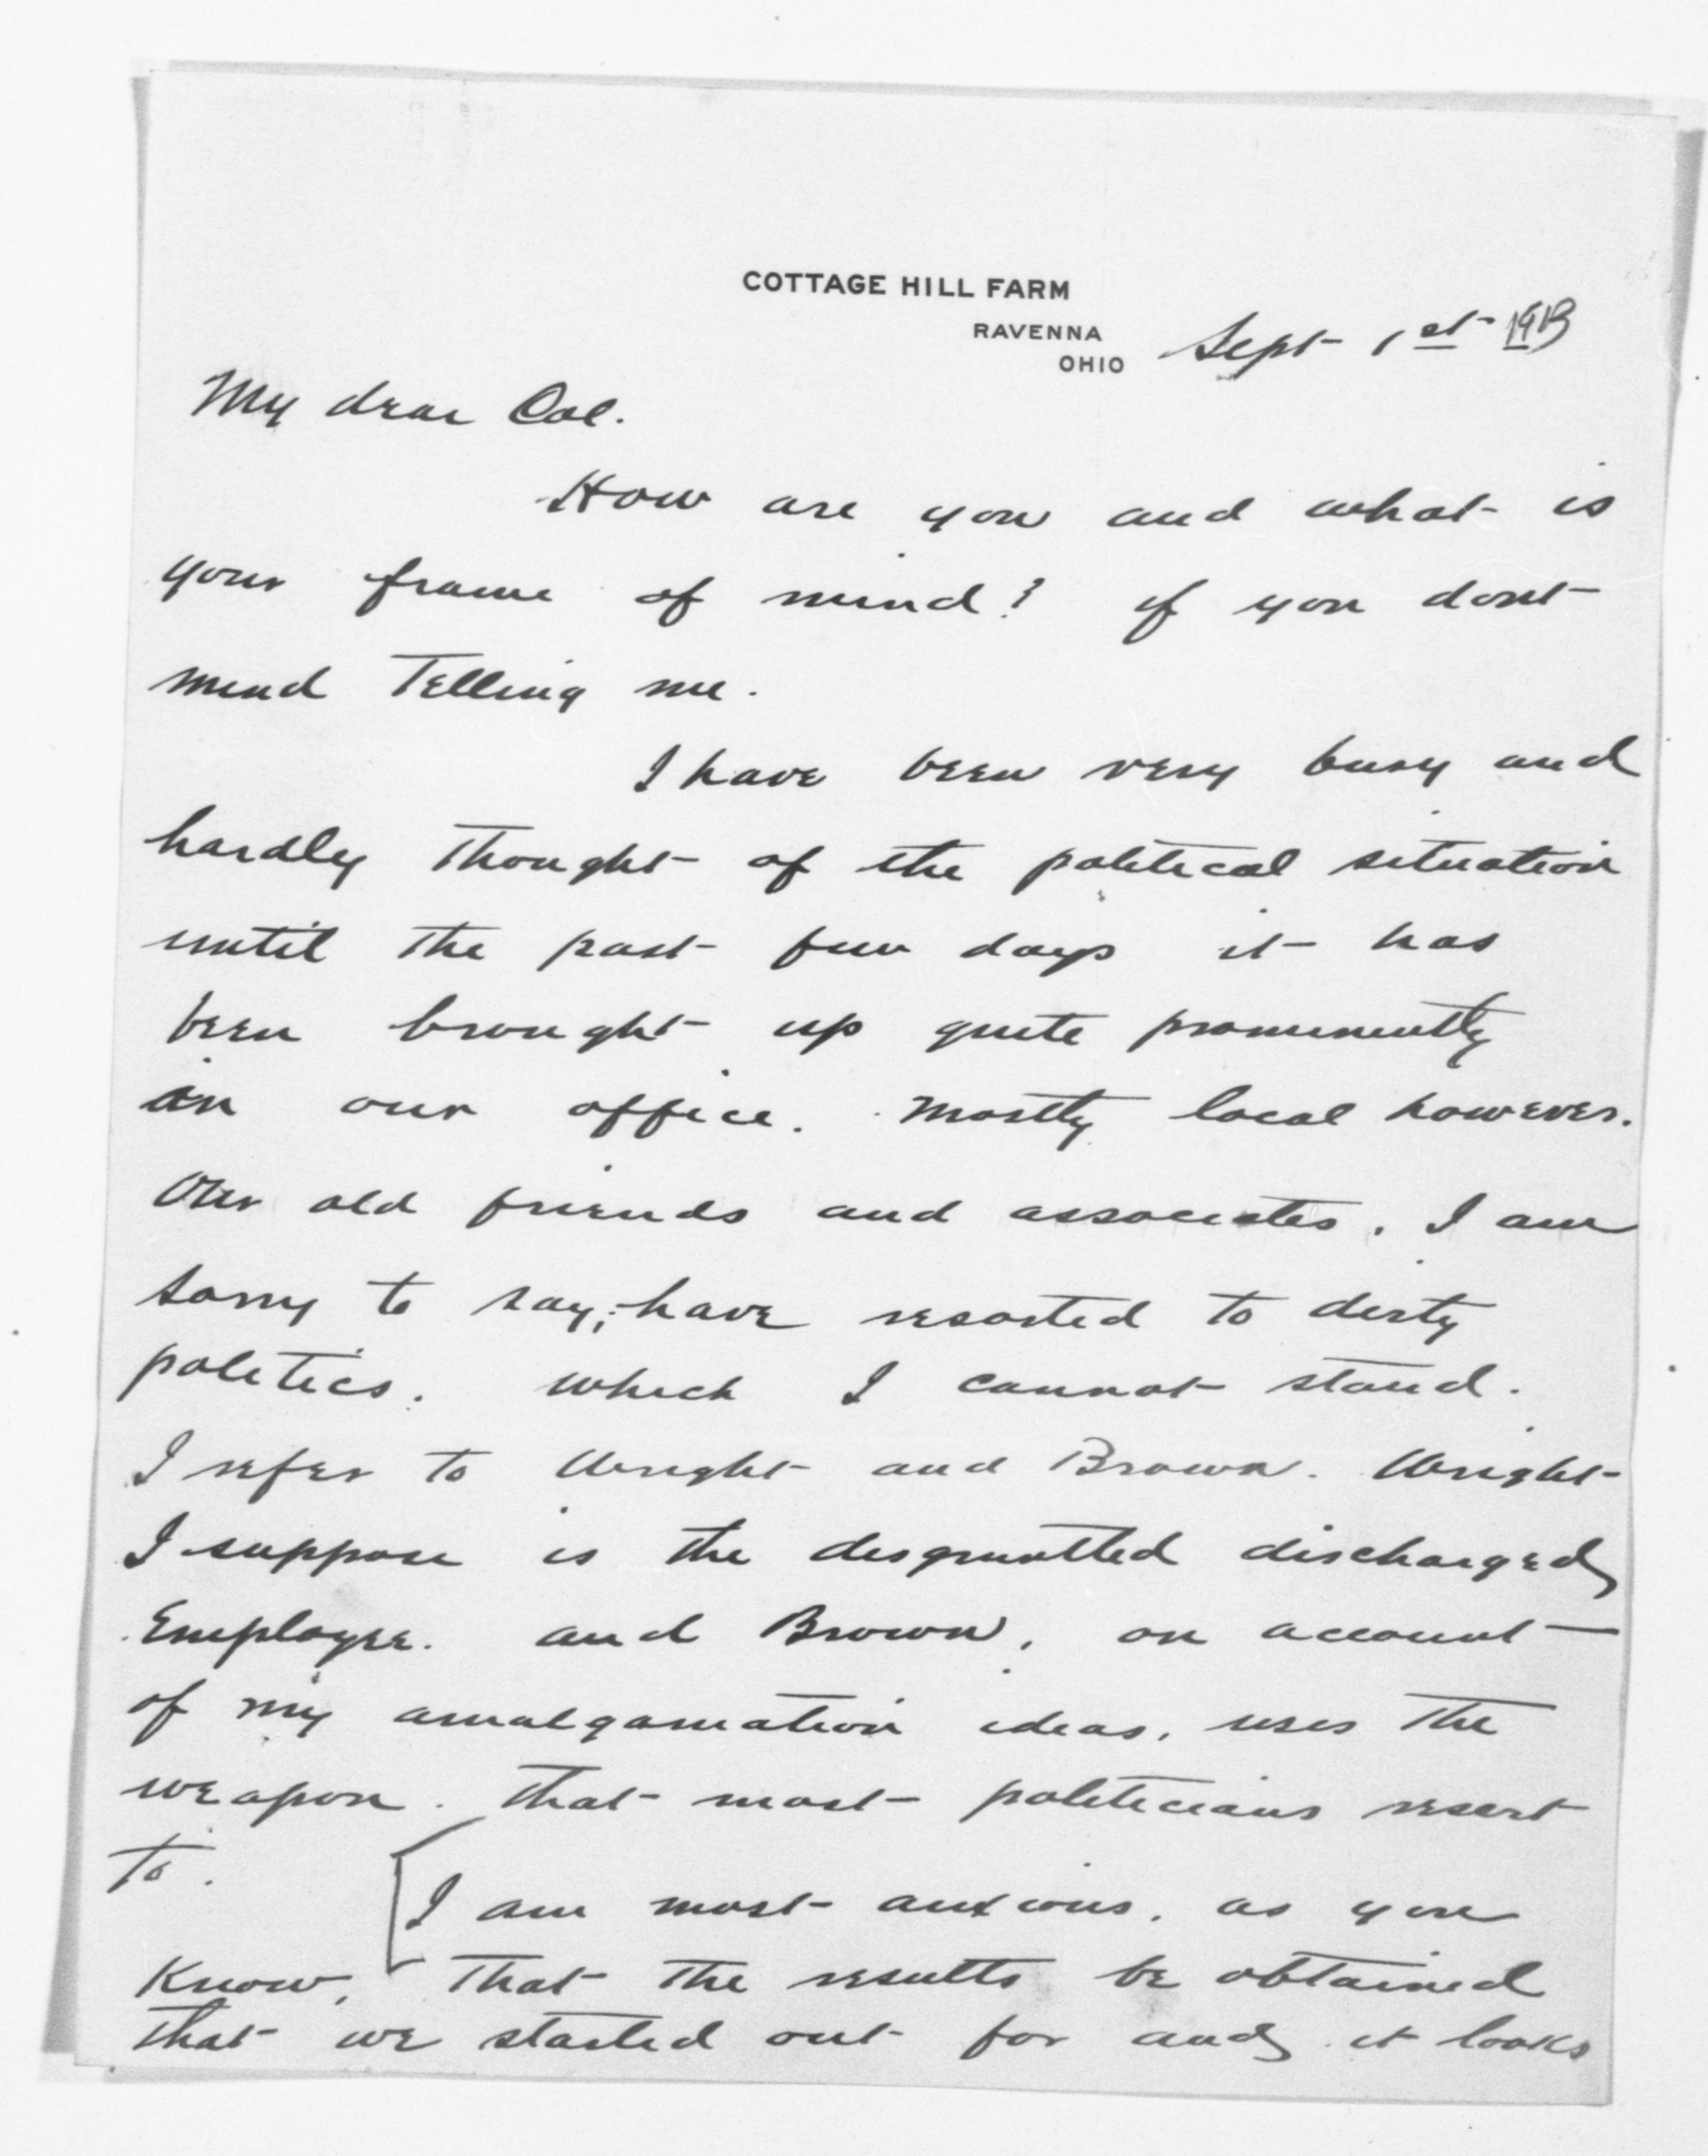 COTTAGE HILL FARM
RAVENNA
OHIO
Sept 1st 1913
My dear Col.
How are you and what is
your frame of mind? if you dont
mind Telling me.
I have been very busy and
hardly thought of the political situation
until the past few days it has
been brought up quite prominently
in our office. Mostly local however.
Our old friends and associates. I am
sorry to say; have resorted to dirty
politics. which I cannot stand.
I refer to Wright and Brown. Wright
I suppose is the disgruntled discharged
Employee. and Brown, on account
of my amalgamation ideas, uses the
weapon. that most politicians resort
to. [I am most anxious, as you
know, that the results be obtained
that we started out for and it looks